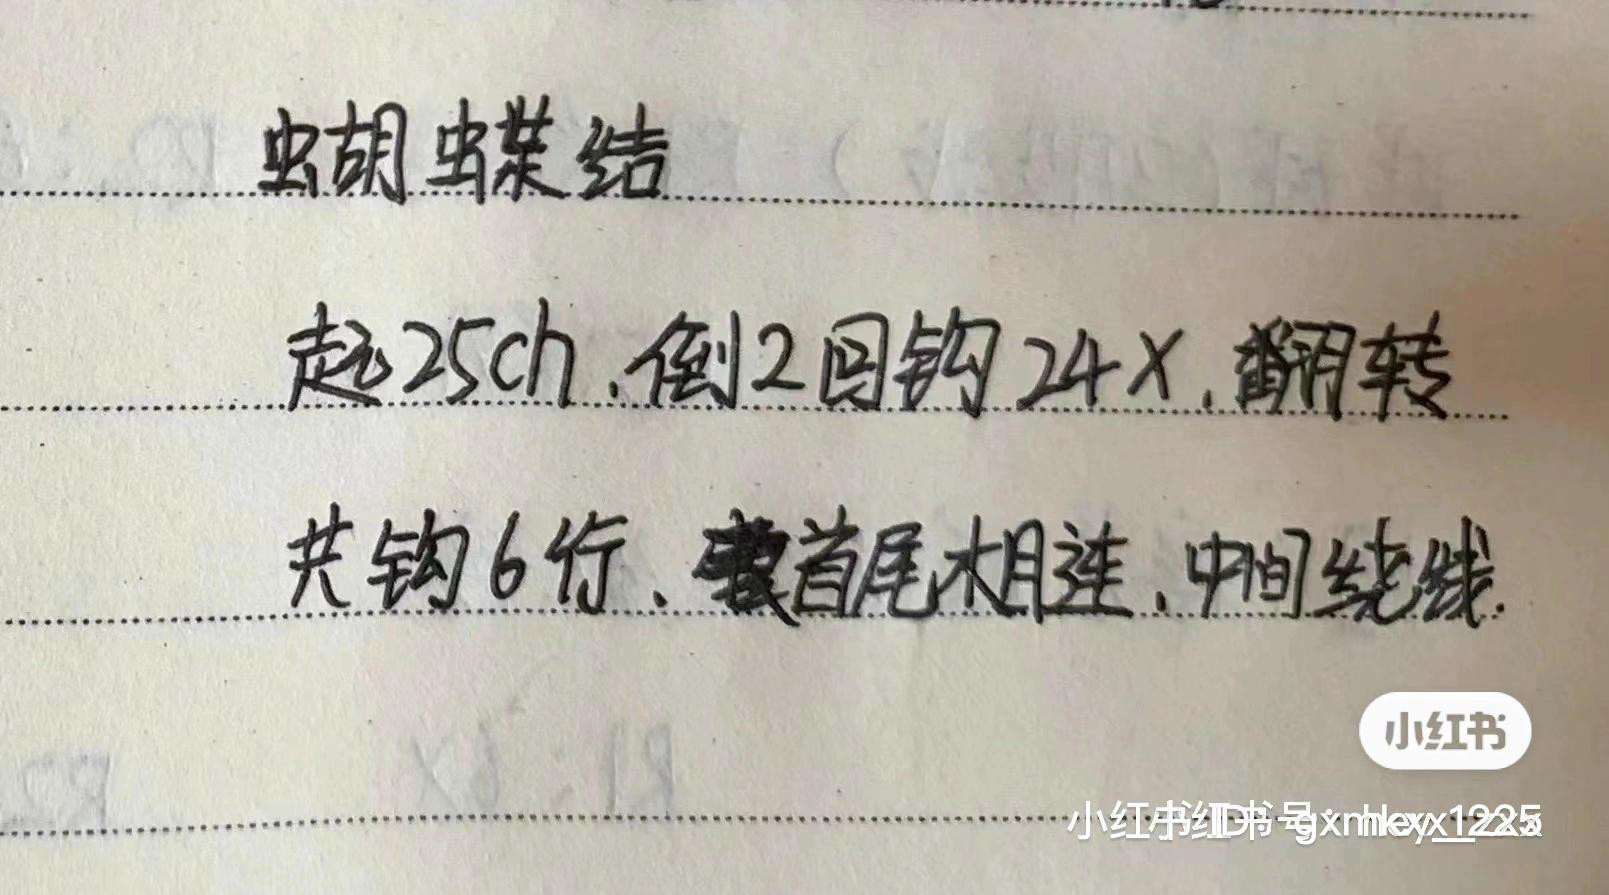 蝴蝶结
起25ch、倒2回钩24X、翻转
共钩6行、首尾相连、中间绕线.
小红书